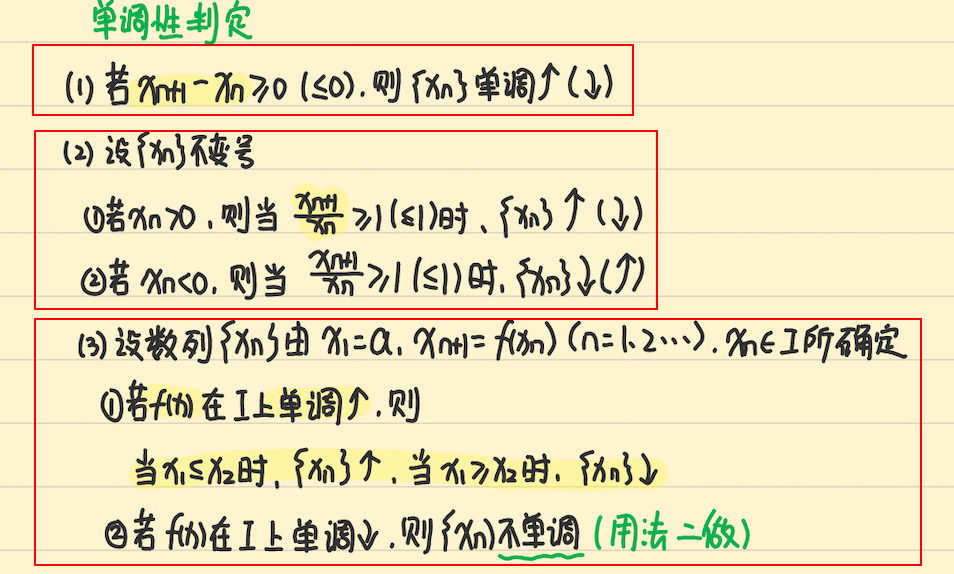 单调性判定
(1) 若 xₙ₊₁ - xₙ ≥ 0 (≤0). 则 {xₙ} 单调↑(↓)
(2) 设{xₙ}不变号
①若xₙ>0, 则当 xₙ₊₁/xₙ ≥1(≤1)时、{xₙ}↑(↓)
②若 xₙ<0, 则当 xₙ₊₁/xₙ ≥1(≤1)时, {xₙ}↓(↑)
(3) 设数列{xₙ}由 x₁=a, xₙ₊₁=f(xₙ) (n=1、2…). xₙ∈I所确定
①若f(x)在I上单调↑, 则
当x₁≤x₂时, {xₙ}↑, 当x₁≥x₂时, {xₙ}↓
②若f(x)在I上单调↓, 则{xₙ}不单调 (用法二做)